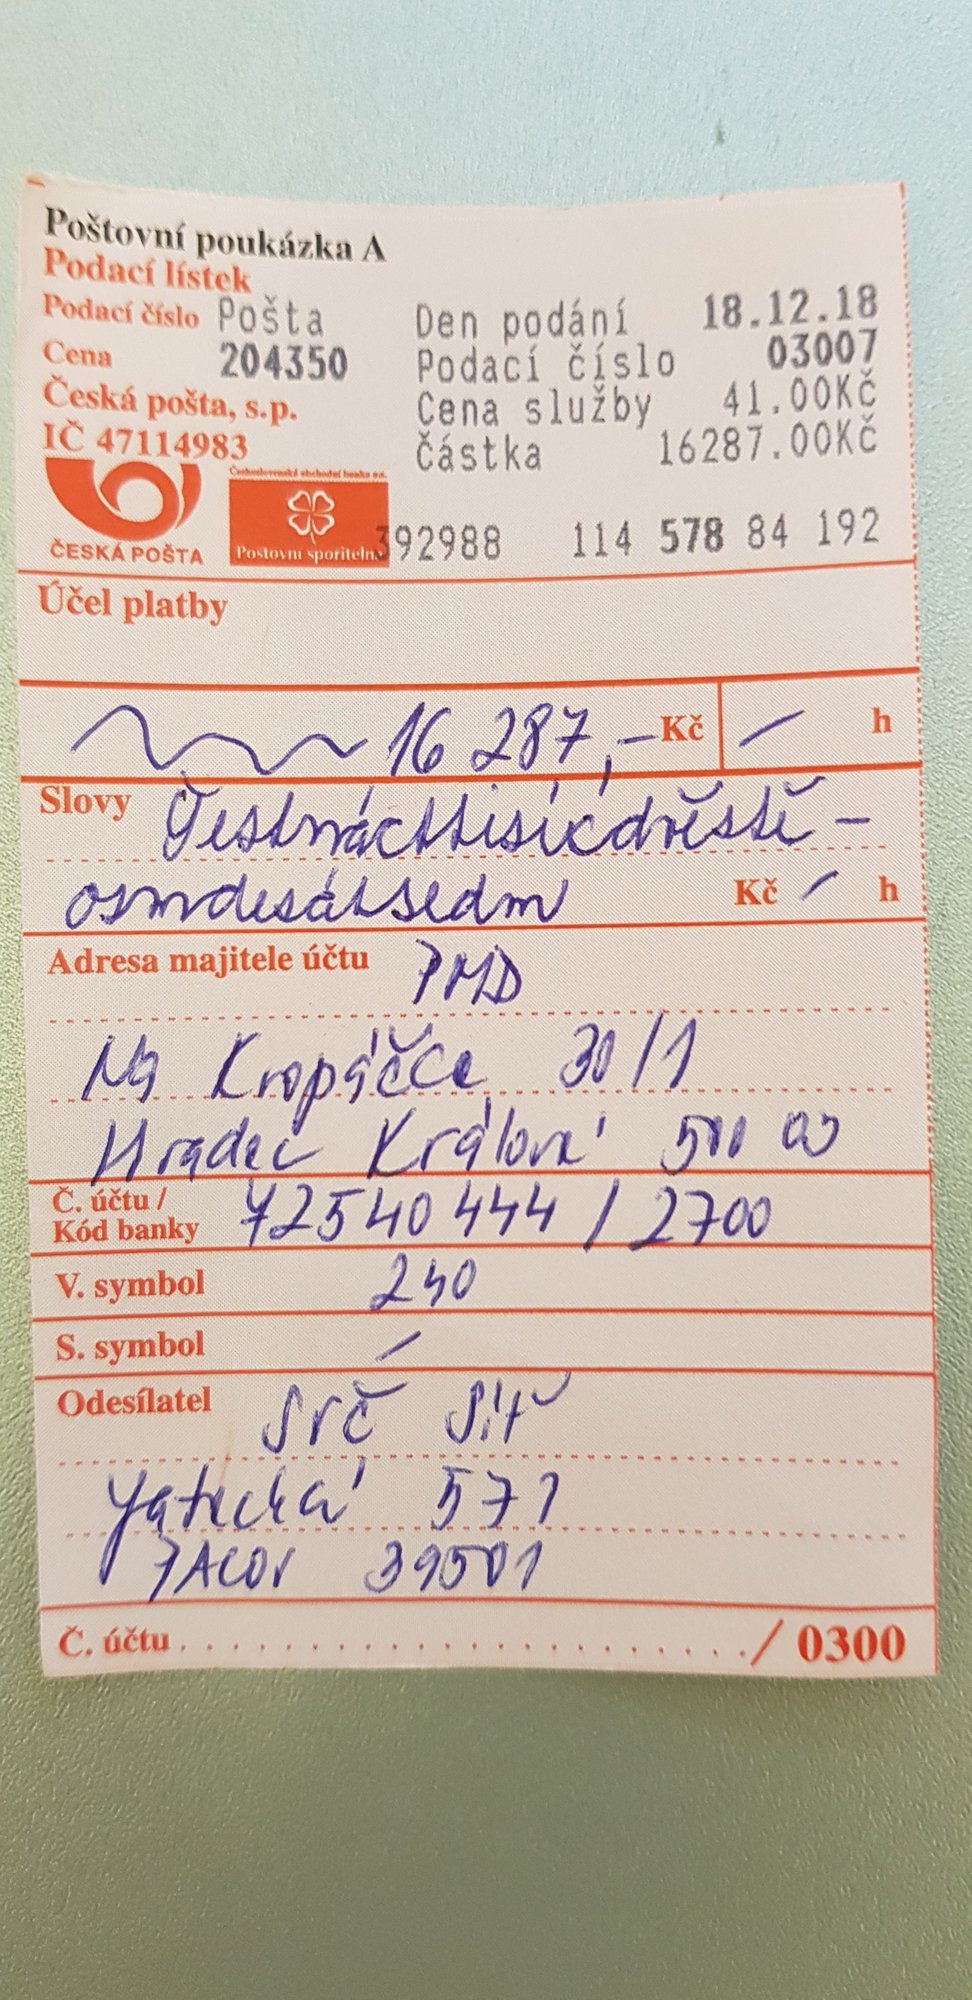 Poštovní poukázka A
Podací lístek
Podací číslo Pošta Den podání 18.12.18
Cena 204350 Podací číslo 03007
Česká pošta, s.p. Cena služby 41.00Kč
IČ 47114983 Částka 16287.00Kč
Československá obchodní banka a.s.
ČESKÁ POŠTA Poštovní spořitelna 392988 114 578 84 192
Účel platby
16 287,– Kč – h
Slovy Šestnácttisícdvěstě –
osmdesátsedm Kč – h
Adresa majitele účtu PMD
Na Kropáčce 30/1
Hradec Králové 500 03
Č. účtu /
Kód banky 72540444 / 2700
V. symbol 240
S. symbol –
Odesílatel Srč Sít
571
PACOV 39501
Č. účtu . . . . . . . . . . . . . . . . . . . . . . . / 0300